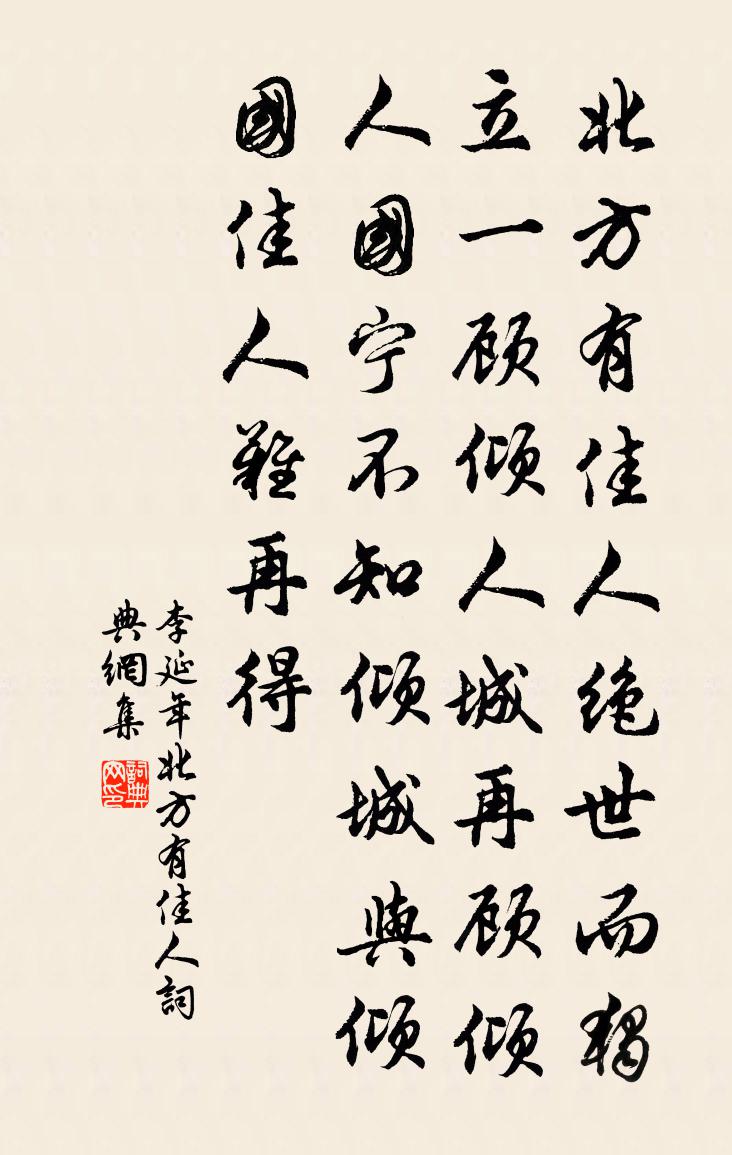 北方有佳人绝世而独
立一顾倾人城再顾倾
人國宁不知倾城與倾
國佳人難再得
李延年北方有佳人詞
典網集
詞典网印